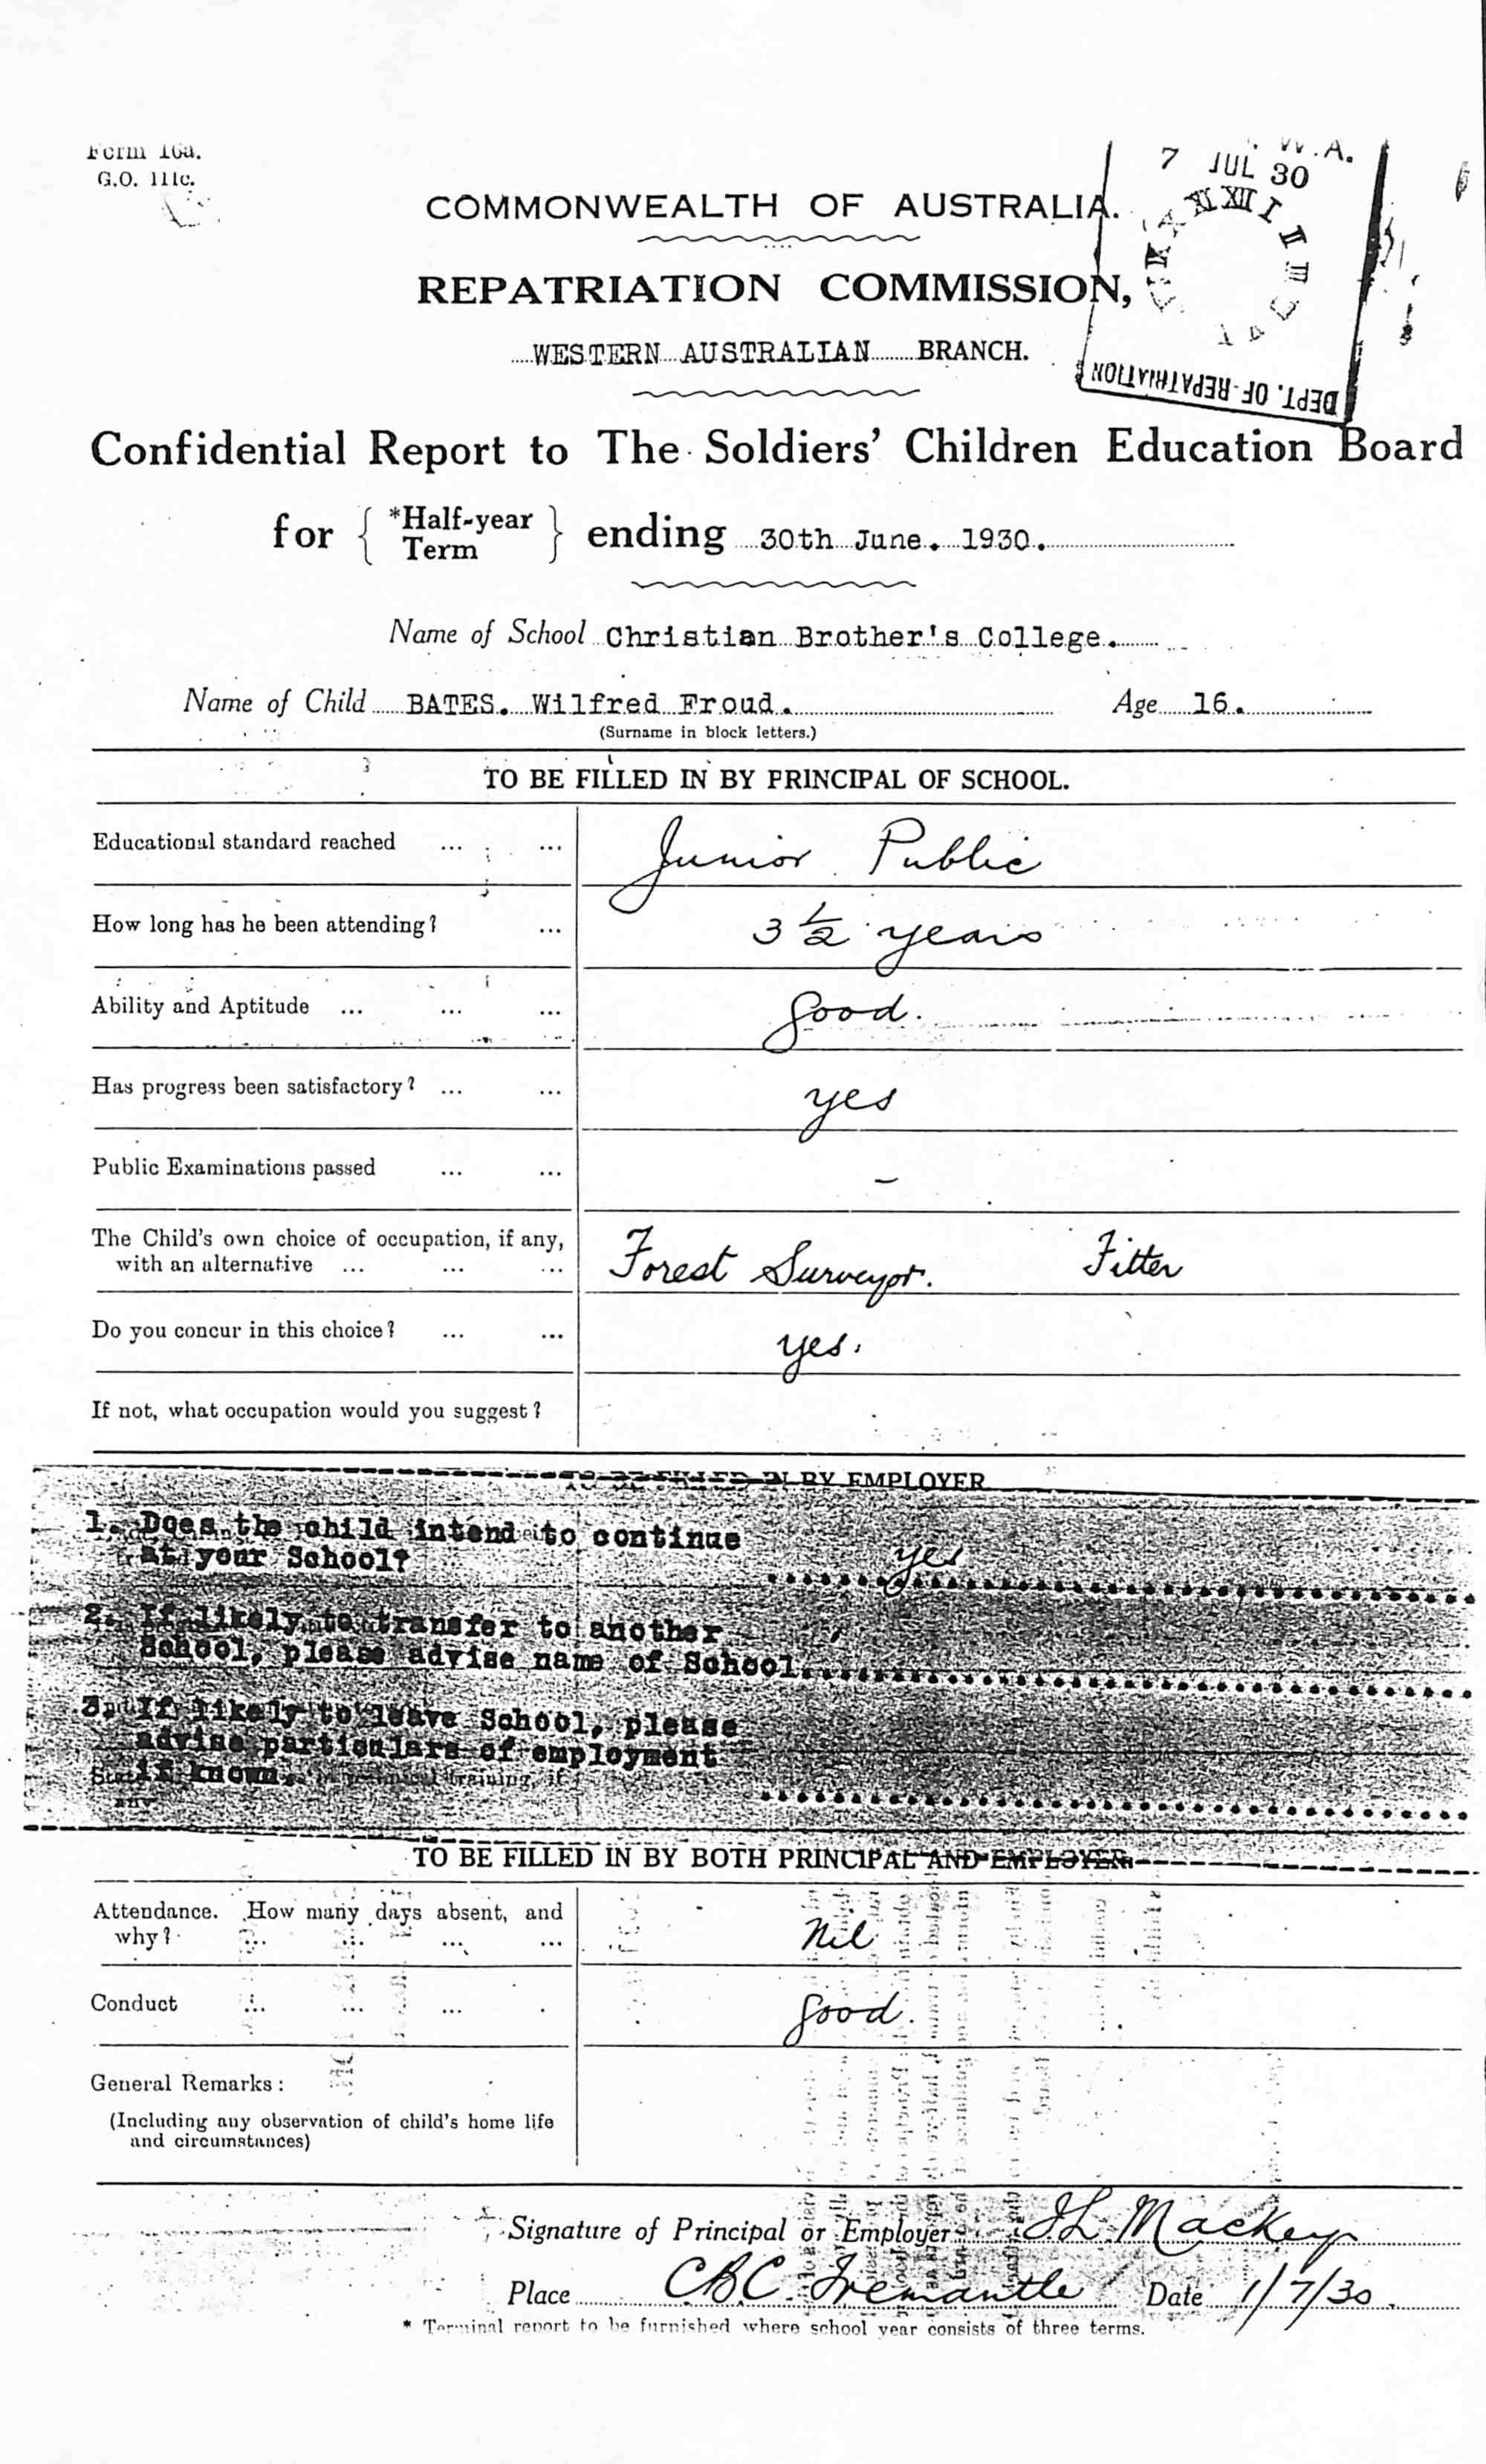 Form 16a.
G.O. 111c.
W.A.
7 JUL 30
XII I II III
DEPT. OF REPATRIATION
COMMONWEALTH OF AUSTRALIA.
REPATRIATION COMMISSION,
WESTERN AUSTRALIAN BRANCH.
Confidential Report to The Soldiers' Children Education Board
for { *Half-year Term } ending 30th June. 1930.
Name of School Christian Brother's College.
Name of Child BATES. Wilfred Froud. Age 16.
(Surname in block letters.)
TO BE FILLED IN BY PRINCIPAL OF SCHOOL.
Educational standard reached ... ... Junior Public
How long has he been attending? ... 3 ½ years
Ability and Aptitude ... ... ... Good.
Has progress been satisfactory? ... ... yes
Public Examinations passed ... ... –
The Child's own choice of occupation, if any,
with an alternative ... ... ... Forest Surveyor. Fitter
Do you concur in this choice? ... ... yes.
If not, what occupation would you suggest?
TO BE FILLED IN BY EMPLOYER
1. Does the child intend to continue
at your School? yes
2. If likely to transfer to another
School, please advise name of School
3. If likely to leave School, please
advise particulars of employment
if known.
technical training, if
any
TO BE FILLED IN BY BOTH PRINCIPAL AND EMPLOYER.
Attendance. How many days absent, and
why? ... ... ... ... Nil
Conduct ... ... ... Good.
General Remarks:
(Including any observation of child's home life
and circumstances)
Signature of Principal or Employer J L Mackey
Place CBC Fremantle Date 1/7/30.
* Terminal report to be furnished where school year consists of three terms.